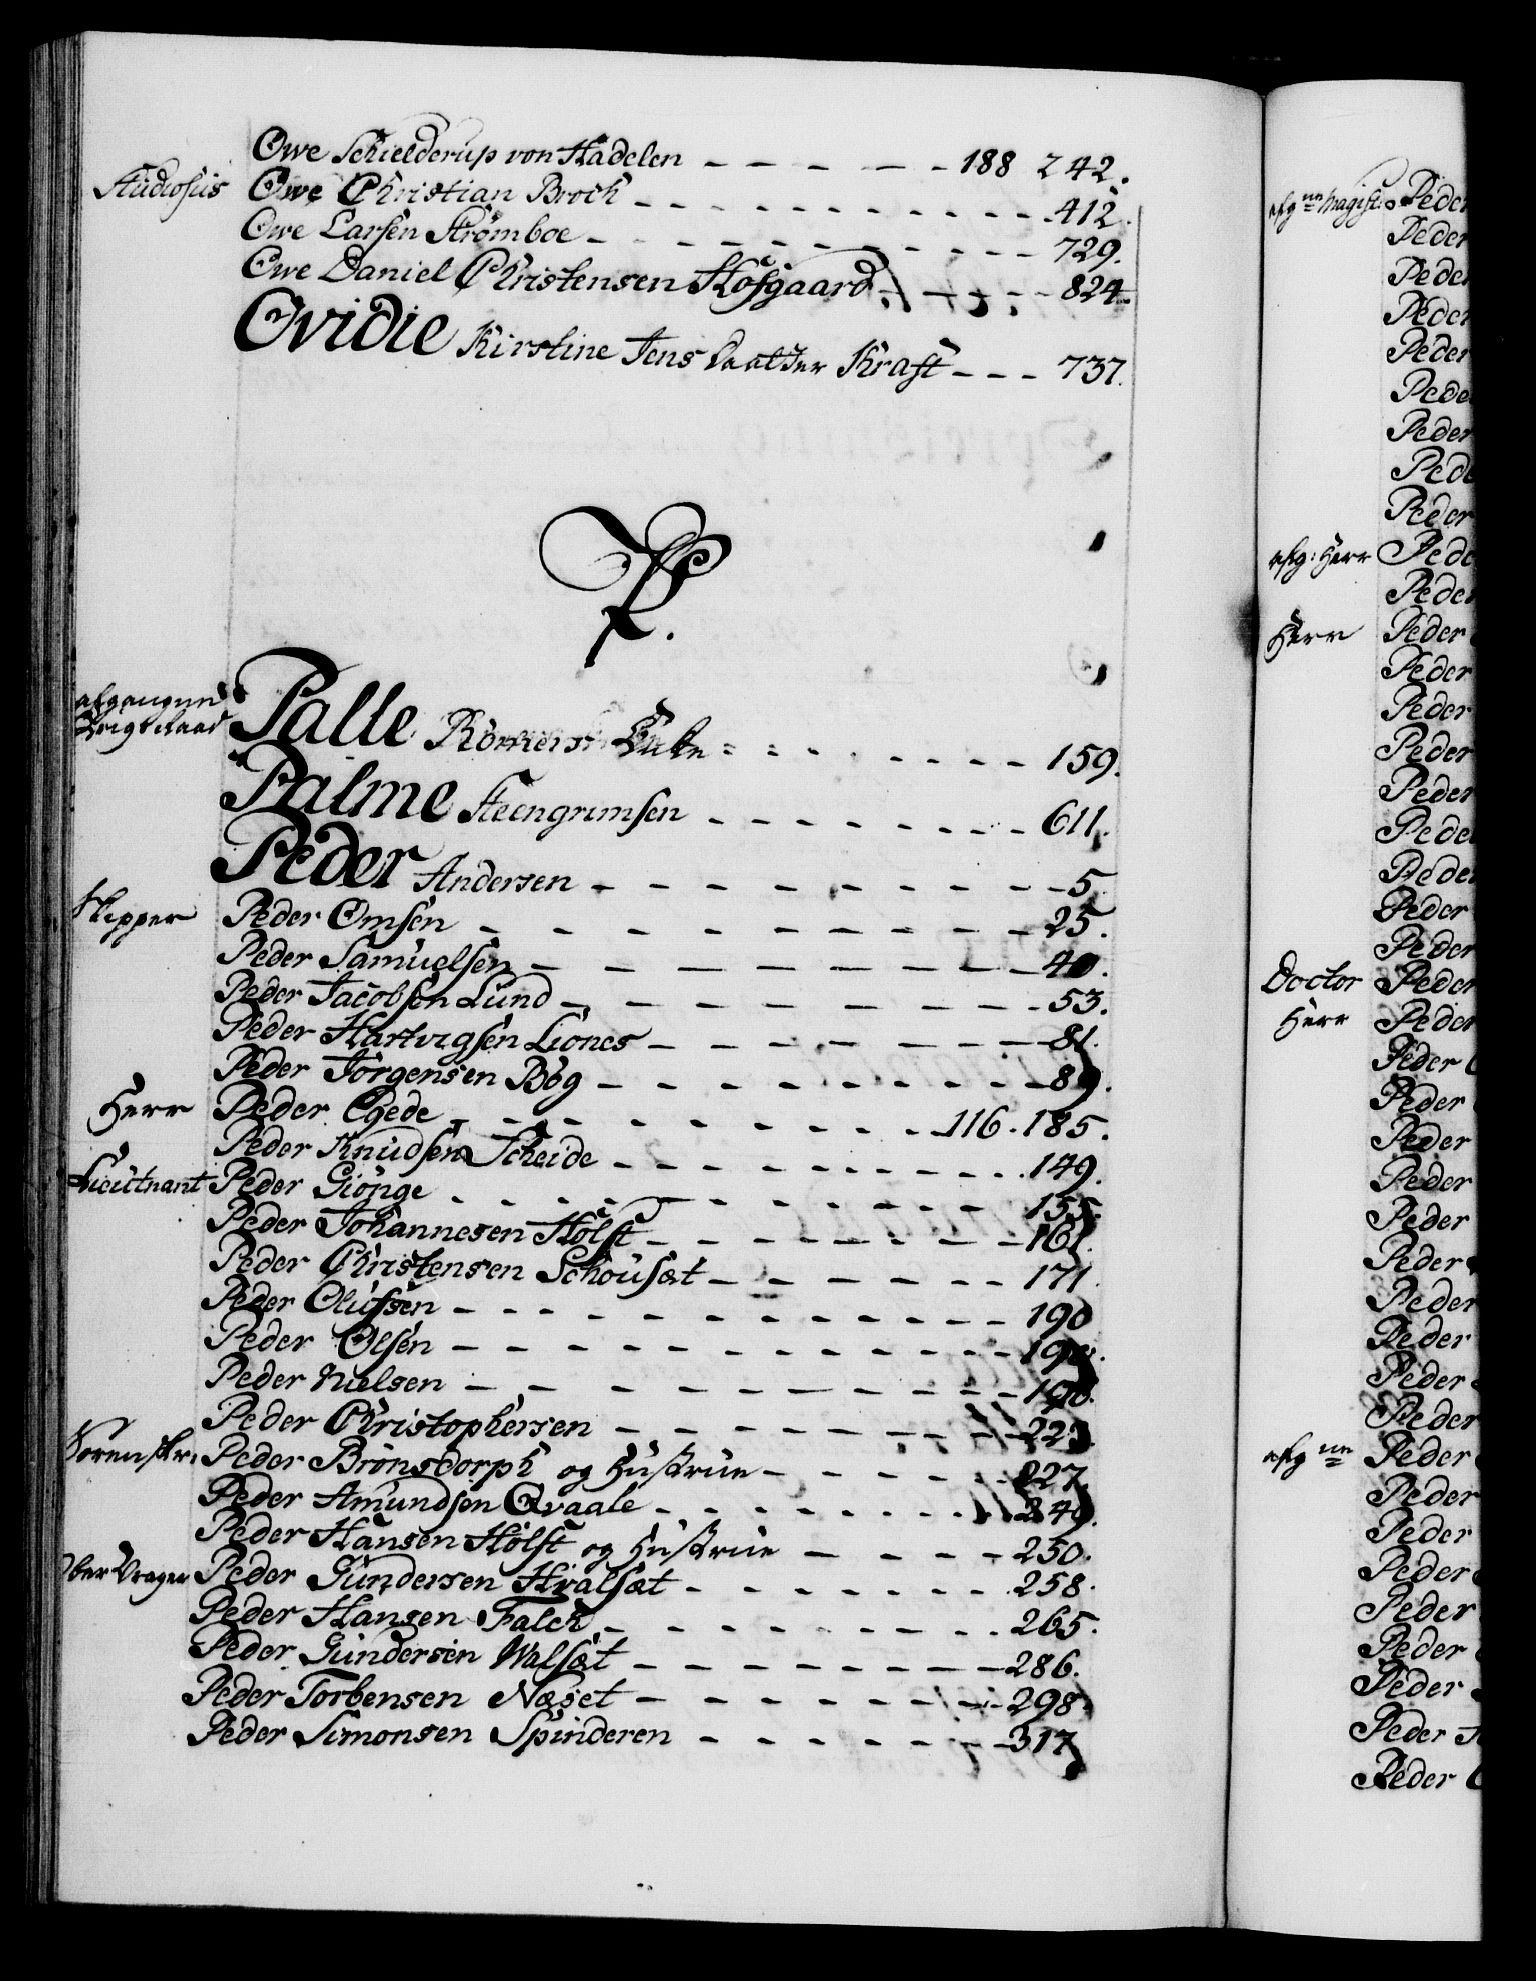 Owe Schielderup von Hadelen - - - - - - 188 242.
Studiosus Owe Christian Broch - - - - - - - - - - - 412.
Owe Larsen Strømboe - - - - - - - - - - 729.
Owe Daniel Christensen Hofgaard - - - - - 824.
Ovidie Kirstine Jens Daatter Kraft - - - 737.
P.
afgangne
Krigs Raad Palle Rømers - - - - - - - - 159.
Palme Steengrimsen - - - - - - - - 611.
Peder Andersen - - - - - - - - - 5.
Skipper Peder Omsen - - - - - - - - - - 25.
Peder Samuelsen - - - - - - - - - 40.
Peder Jacobsen Lund - - - - - - - - 53.
Peder Hartvigsen Liones - - - - - - - 81.
Peder Jørgensen Bøg - - - - - - - - 89.
Herr Peder Egede - - - - - - - - 116. 185.
Peder Knudsen Scheide - - - - - - - - 149.
Lieutnant Peder Giønge - - - - - - - - - - 155.
Peder Johannesen Holst - - - - - - - 161.
Peder Christensen Schousæt - - - - - - 171.
Peder Olufsen - - - - - - - - - - - 190
Peder Olsen - - - - - - - - - - - 190.
Peder Nielsen - - - - - - - - - - 190.
Peder Christophersen - - - - - - - - 223.
Sorenskr: Peder Brønsdorph og Hustrue - - - - - - 227.
Peder Amundsen Qvaale - - - - - - - 249.
Peder Hansen Holst og Hustrue - - - - - 250.
Peder Gundersen Hvalsæt - - - - - - - 258.
Peder Hansen Falch - - - - - - - - 265.
Peder Gundersen Walsæt - - - - - - - - 286.
Peder Torbensen Næset - - - - - - - - 298.
Peder Simonsen Spinderen - - - - - - 317
Magist: Peder
Peder
Peder
Peder
Peder
Peder
Peder
Peder
Peder
afg: Herr Peder
Peder
Herr Peder
Peder
Peder
Peder
Peder
Peder
Peder
Peder
Peder
Doctor Peder
Herr Peder
Peder
Peder
Peder
Peder
Peder
Peder
Peder
Peder
Peder
Peder
afgne Peder
Peder
Peder
Peder
Peder
Peder
Peder
Peder
Peder